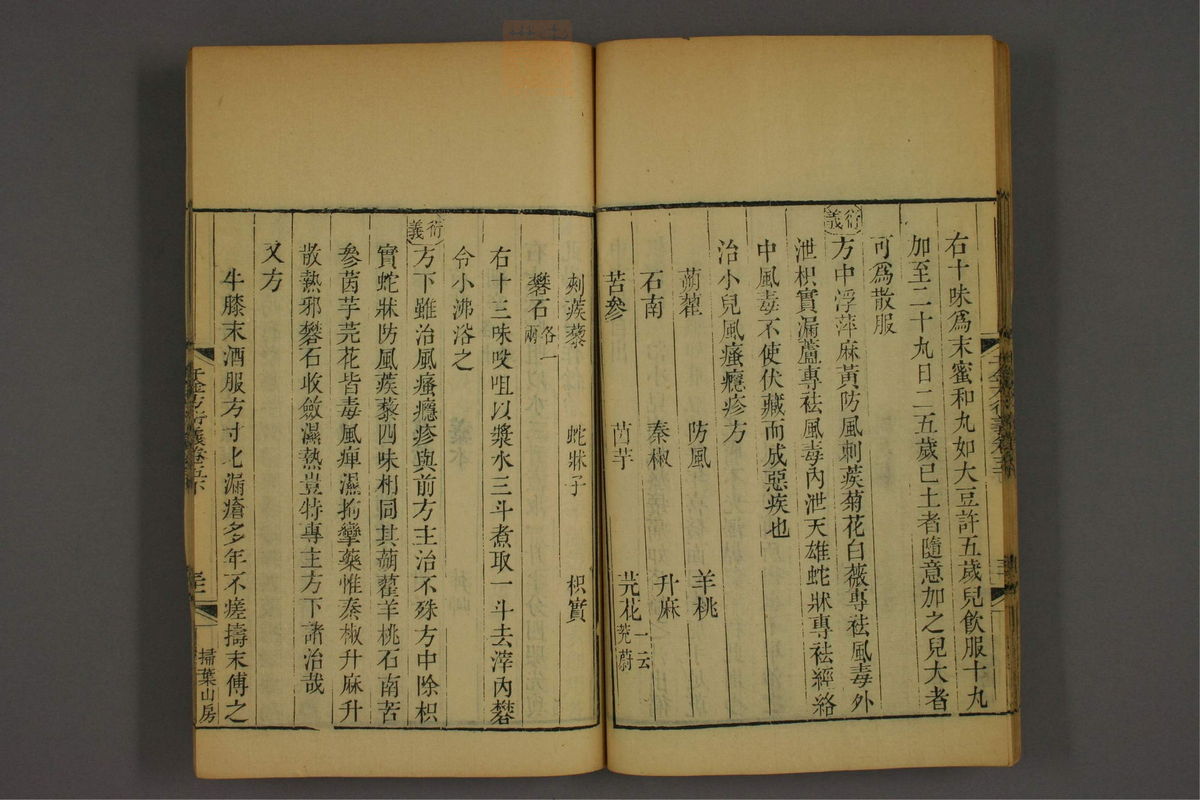 右十味爲末蜜和丸如大豆許五歲兒飮服十九
加至二十九日二五歲已土者隨意加之兒大者
可爲散服
衍義
方中浮萍麻黃防風刺蒺菊花白薇專祛風毒外
泄枳實漏蘆專祛風毒內泄天雄蛇牀專祛經絡
中風毒不使伏藏而成惡疾也
治小兒風瘙癮疹方
蒴藋 防風 羊桃
石南 秦椒 升麻
苦參 茵芋 芫花一云芫蔚
刺蒺藜 蛇牀子 枳實
礬石各一兩
右十三味㕮咀以漿水三斗煮取一斗去滓內礬
令小沸浴之
衍義
方下雖治風瘙癮疹與前方主治不殊方中除枳
實蛇牀防風蒺藜四味相同其蒴藋羊桃石南苦
參茵芋芫花皆毒風痺濕拘攣藥惟秦椒升麻升
散熱邪礬石收斂濕熱豈特專主方下諸治哉
又方
牛膝末酒服方寸匕漏瘡多年不瘥擣末傅之
千金方衍義卷五下
掃葉山房